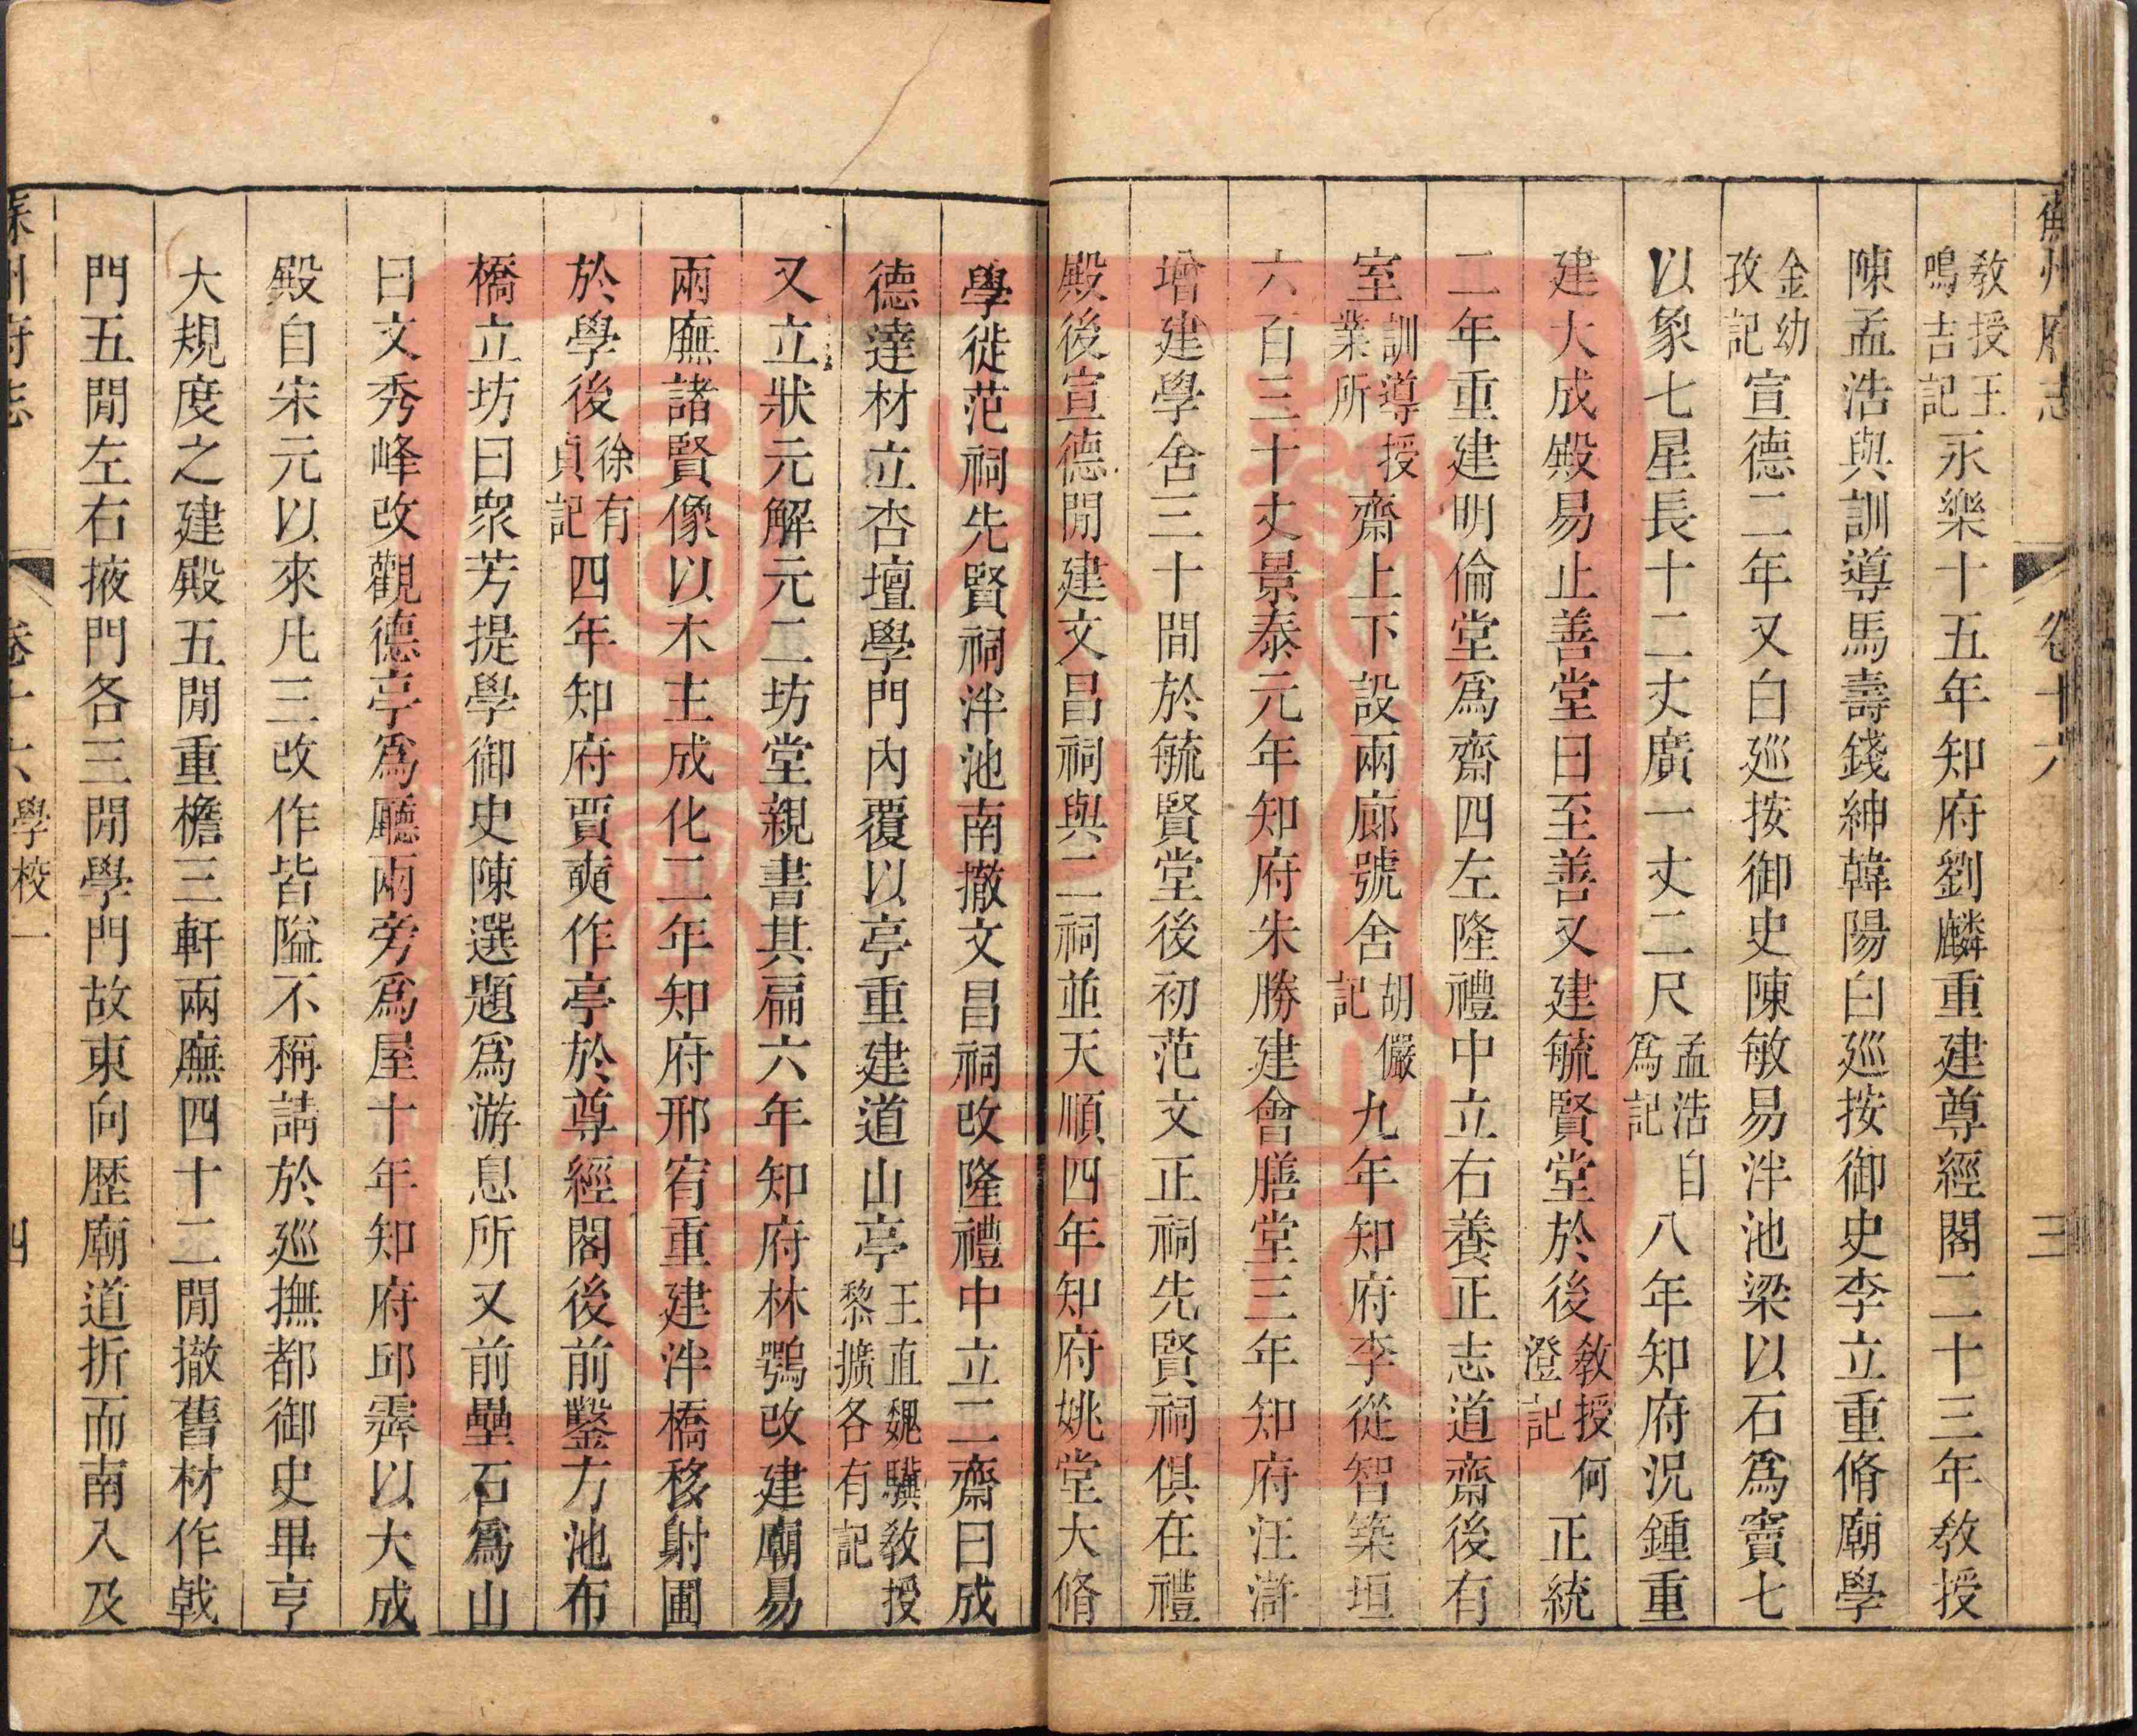 蘇州府志 卷十六 三
教授王鳴吉記永樂十五年知府劉麟重建尊經閣二十三年教授
陳孟浩與訓導馬壽錢紳韓陽白巡按御史李立重脩廟學
金幼孜記宣德二年又白巡按御史陳敏易泮池梁以石爲竇七
以象七星長十二丈廣一丈二尺孟浩自爲記八年知府況鍾重
建大成殿易止善堂曰至善又建毓賢堂於後教授何澄記正統
二年重建明倫堂爲齋四左隆禮中立右養正志道齋後有
室訓導授業所齋上下設兩廊號舍胡儼記九年知府李從智築垣
六百三十丈景泰元年知府朱勝建會膳堂三年知府汪滸
增建學舍三十間於毓賢堂後初范文正祠先賢祠俱在禮
殿後宣德閒建文昌祠與二祠並天順四年知府姚堂大脩
學徙范祠先賢祠泮池南撤文昌祠改隆禮中立二齋曰成
德達材立杏壇學門內覆以亭重建道山亭王直魏驥教授黎擴各有記
又立狀元解元二坊堂親書其扁六年知府林鶚改建廟易
兩廡諸賢像以木主成化二年知府邢宥重建泮橋移射圃
於學後徐有貞記四年知府賈奭作亭於尊經閣後前鑿方池布
橋立坊曰眾芳提學御史陳選題爲游息所又前壘石爲山
曰文秀峰改觀德亭爲廳兩旁爲屋十年知府邱霽以大成
殿自宋元以來凡三改作皆隘不稱請於巡撫都御史畢亨
大規度之建殿五閒重檐三軒兩廡四十二閒撤舊材作戟
門五閒左右掖門各三閒學門故東向歷廟道折而南入及
蘇州府志 卷十六 學校一 四